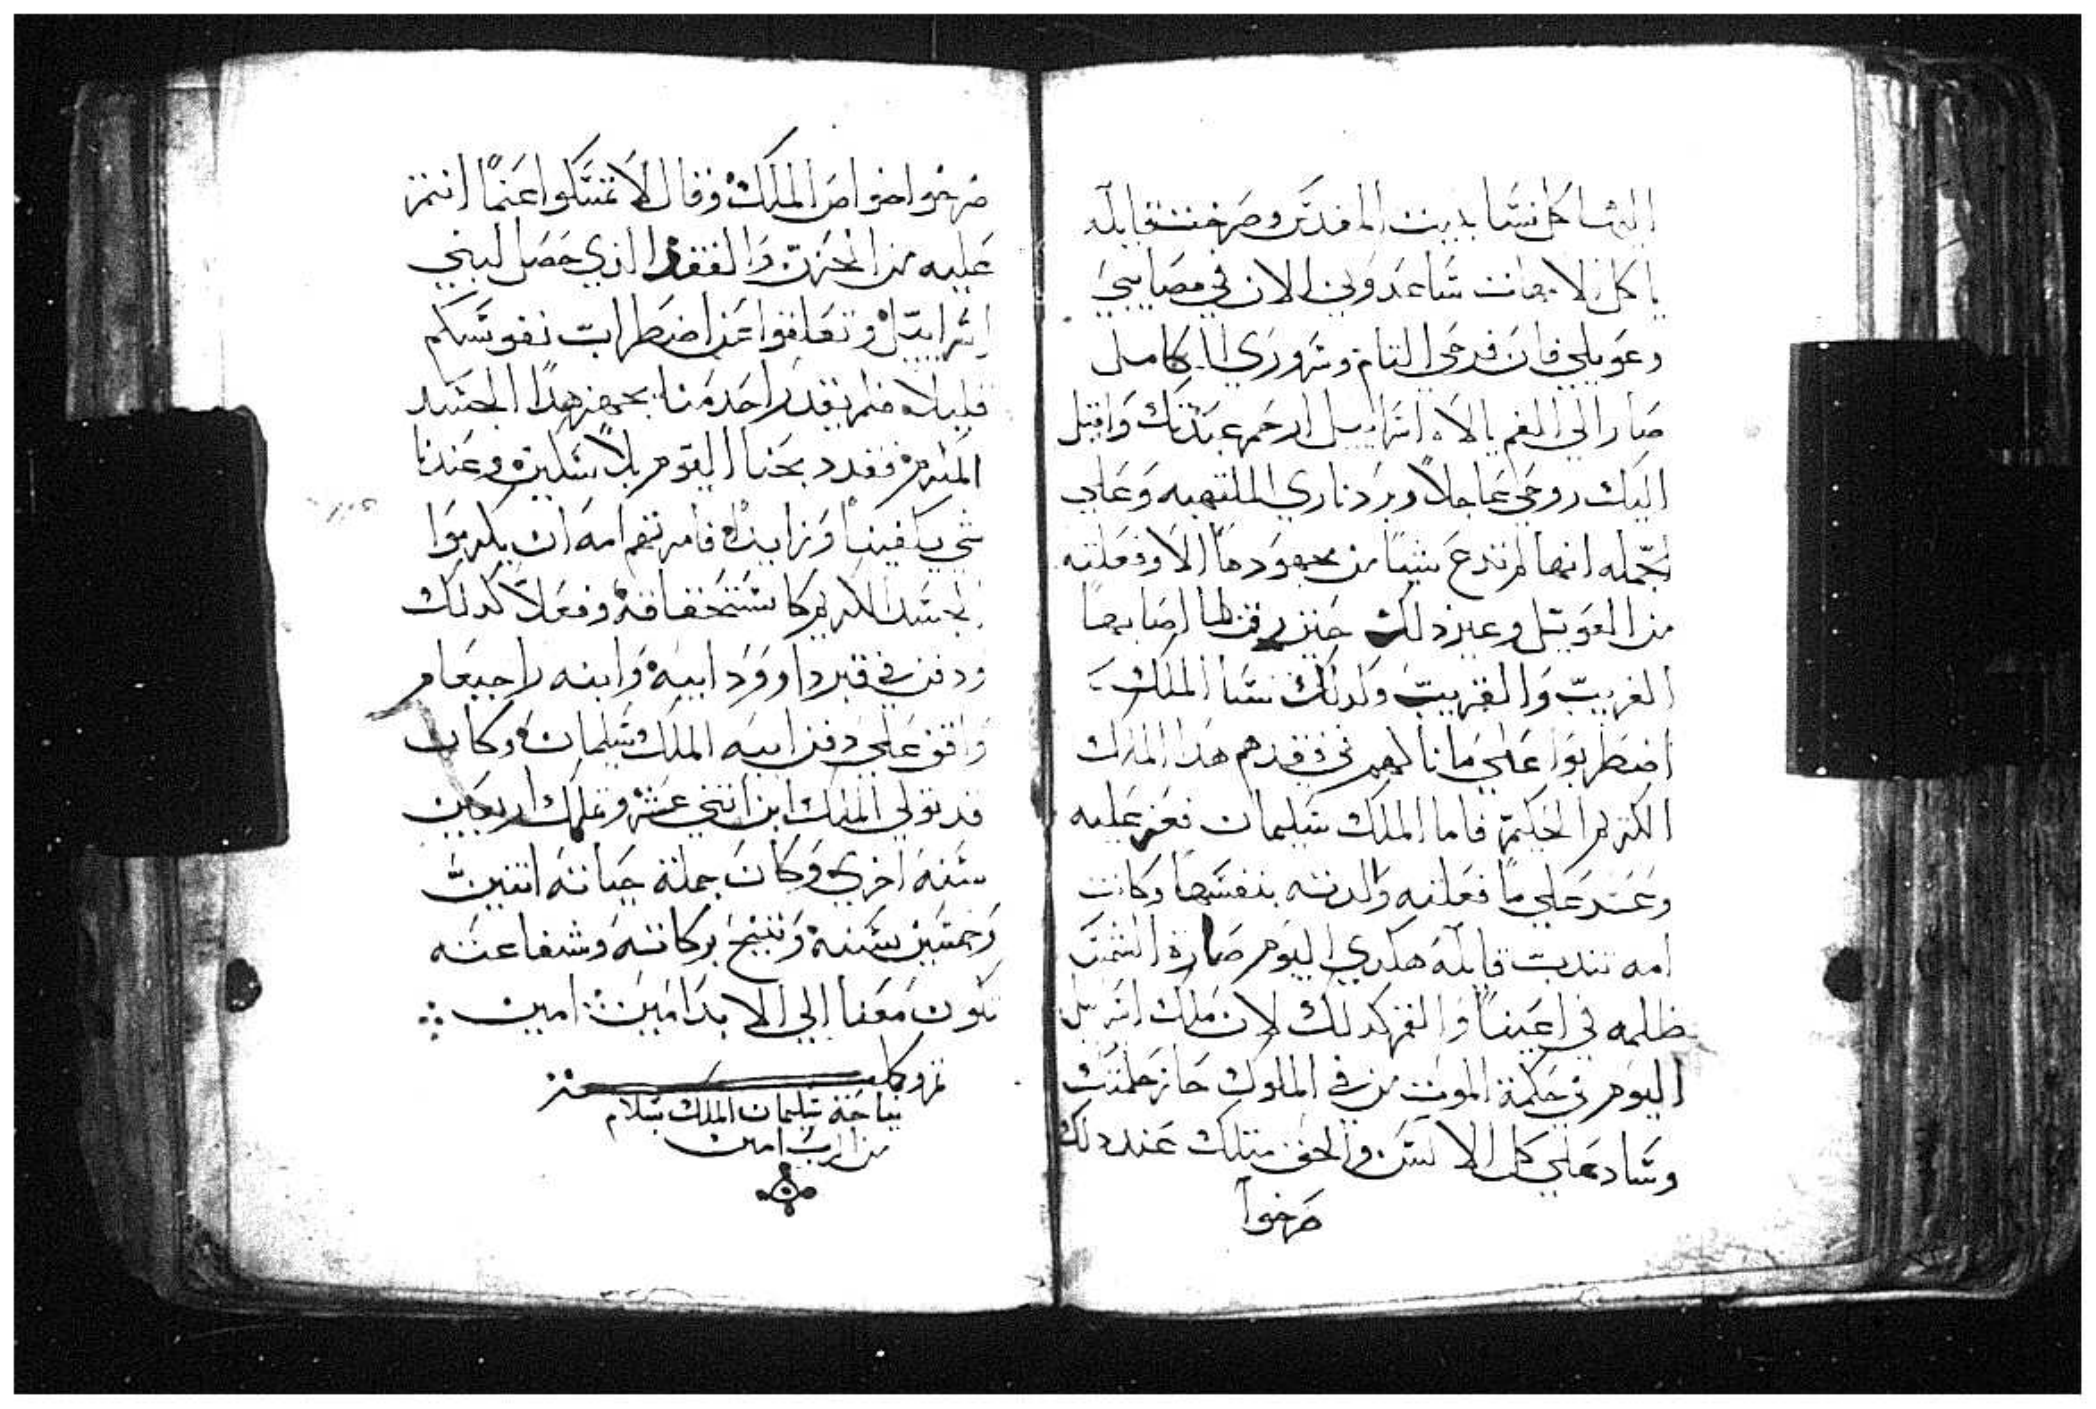 اليها كل نسا بيت المقدس وصرخت قايله
يا كل الامهات ساعدوني الان في مصايبي
وعويلي فان فرحي التام وسروري الكامل
صار الي الغم يا الاه اسراييل ارحم عبدتك واقبل
اليك روحي عاجلاً وبرد ناري الملتهبه وعلي
الجمله انها لم تدع شياً من مجهودها الا وفعلته
من العويل وغير ذلك حتي رق لها اصابها
الغريب والقريب وكدلك نسا الملك
اضطربوا علي ما نالهم في فقدهم هدا الملك
الكريم الحكيم فاما الملك سليمان فعز عليه
وعسر علي ما فعلته والدته بنفسها وكانت
امه تندب قايله هكدي اليوم صارة الشمس
ظلمه في اعيننا والقمر كدلك لان ملك اسرييل
اليوم في حكمة الموت من في الملوك حاز حكمتك
وساد علي كل الانس والجن متلك عند دلك
صرخوا
صرخوا خواص الملك وقال لا تمسكوا عنما انتم
عليه من الحزن والفقد الذي حصل لبني
اسراييل وتعافوا عن اضطراب نفوسكم
قليلا فلم يقدر احد منا يجهز هدا الجسد
المكرم فقد دبحنا اليوم بلا سكين وعندنا
شي يكفينا وزايد فامرتهم امه ان يكرموا
الجسد الكريم كاستحقاقه وفعلا كدلك
ودفن في قبر داوود ابيه وابنه راجبعام
وافق علي دفن ابيه الملك سليمان وكان
قد تولي الملك ابن اتني عشر وتملك اربعين
سنه اخري وكان جملة حياته اتنين
وخمسين سنه وتنيح بركاته وشفاعته
تكون معنا الي الابد امين امين
تم وكمل خبر
نياحة سليمان الملك بسلام
من الرب امين